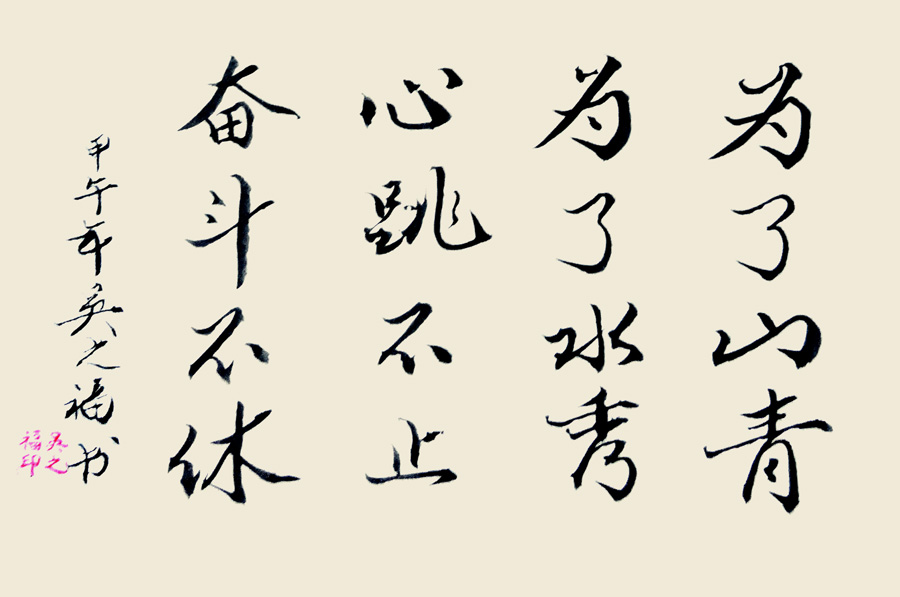 为了山青
为了水秀
心跳不止
奋斗不休
甲午年吴之福书
吴之
福印